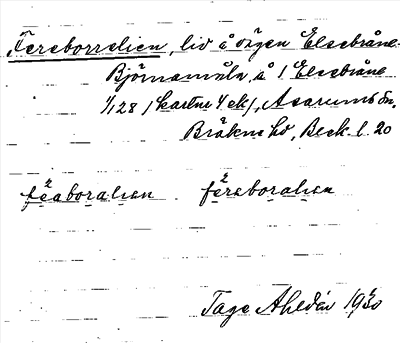 Fereborrelien, liv å vägen Elsebråne-
Björnamåla, å 1 Elsebråne
1/128 (kartnr 4 ek), Asarums sn.
Bräkne hd, Beck. l. 20
feaboralien fereboralien
Tage Ahldén 1930